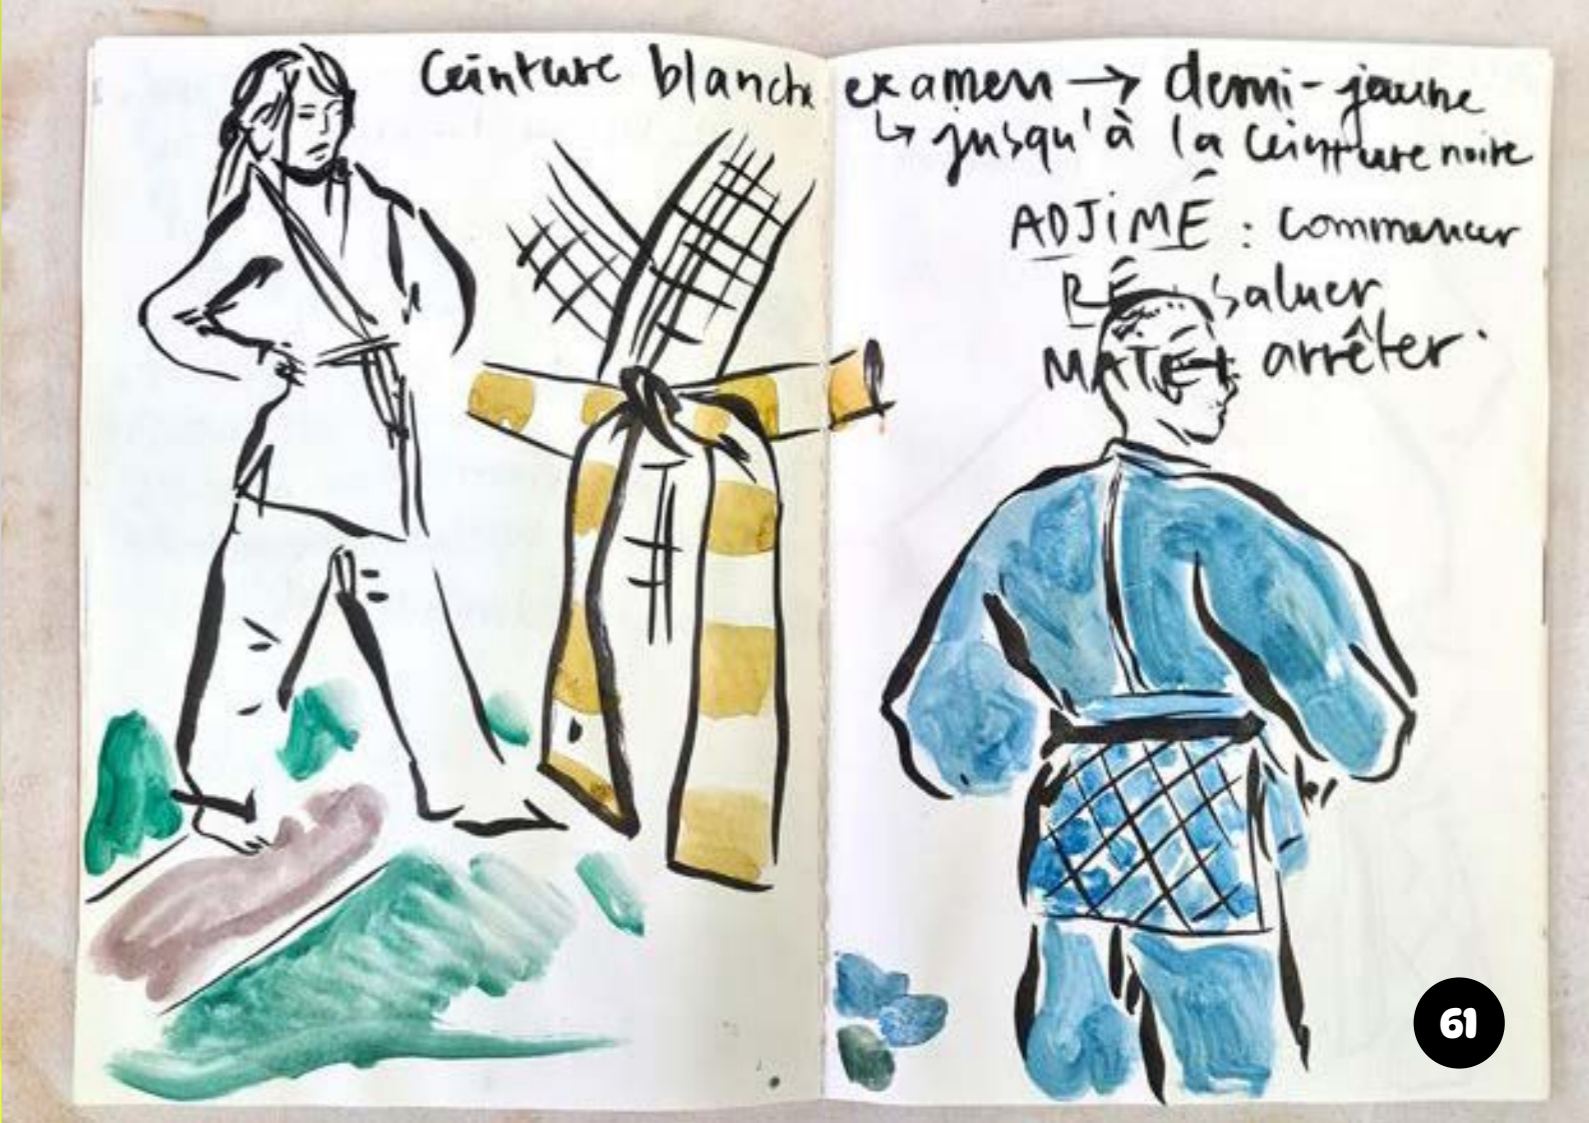 Ceinture blanche
examen → demi-jaune
↳ jusqu'à la ceinture noire
ADJIMÉ : commencer
RÉ : saluer
MATÉ : arrêter.
61